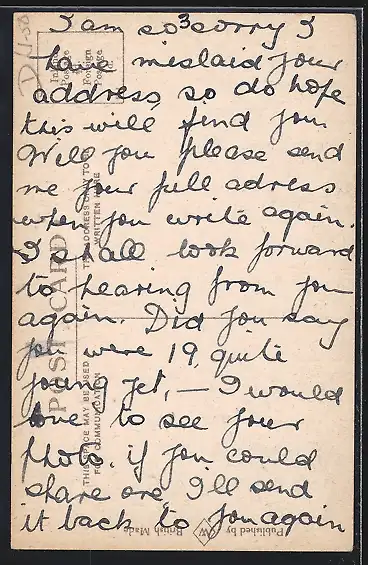 3
I am so sorry I
have mislaid your
address, so do hope
this will find you
Will you please send
me your full adress
when you write again.
I shall look forward
to hearing from you
again. Did you say
you were 19, quite
young yet, — I would
love to see your
photo, if you could
share one I'll send
it back to you again
POST CARD
THIS SPACE MAY BE USED
FOR COMMUNICATION
THE ADDRESS ONLY TO BE
WRITTEN HERE
Inland
Postage
Foreign
Postage
Published by
British Made